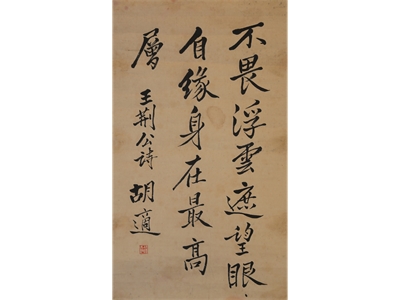 不畏浮雲遮望眼，
自缘身在最高
層 王荆公诗 胡適